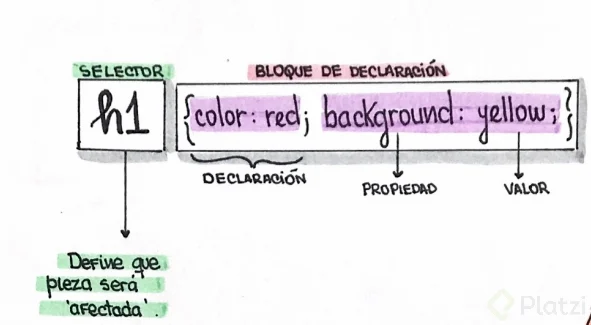 SELECTOR
BLOQUE DE DECLARACIÓN
h1 {color: red; background: yellow;}
DECLARACIÓN
PROPIEDAD
VALOR
Define que
pieza será
'afectada'.
Platzi